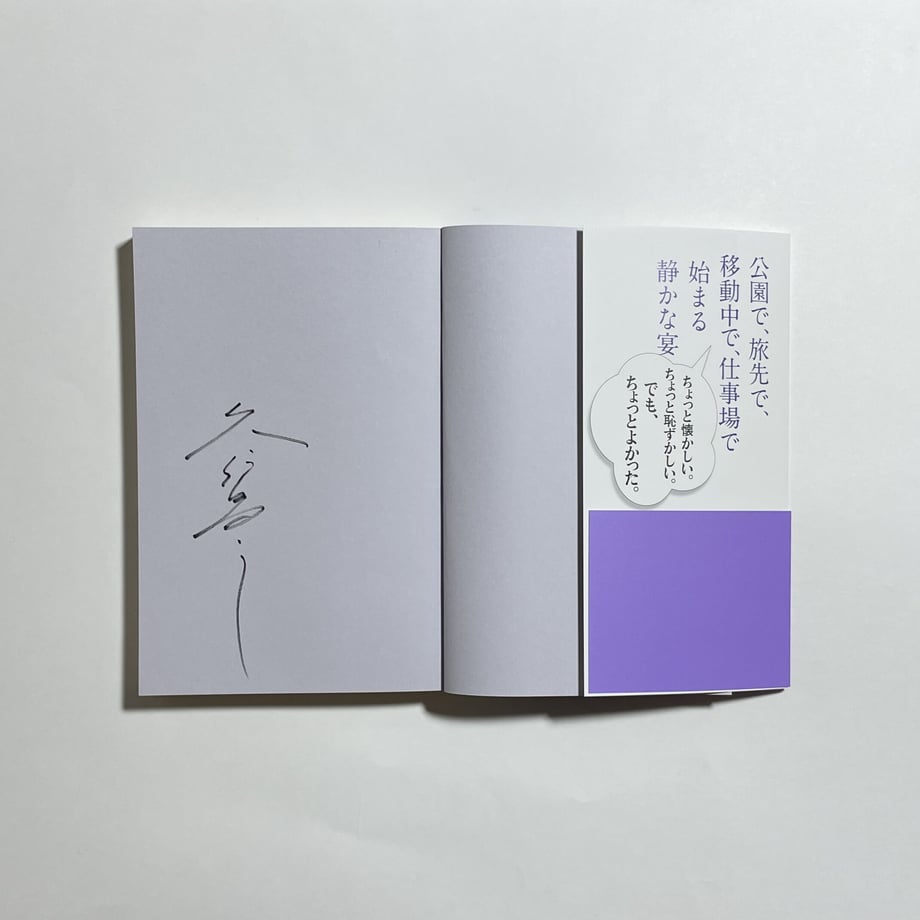 公園で、旅先で、
移動中で、仕事場で
始まる
静かな宴
ちょっと懐かしい。
ちょっと恥ずかしい。
でも、
ちょっとよかった。